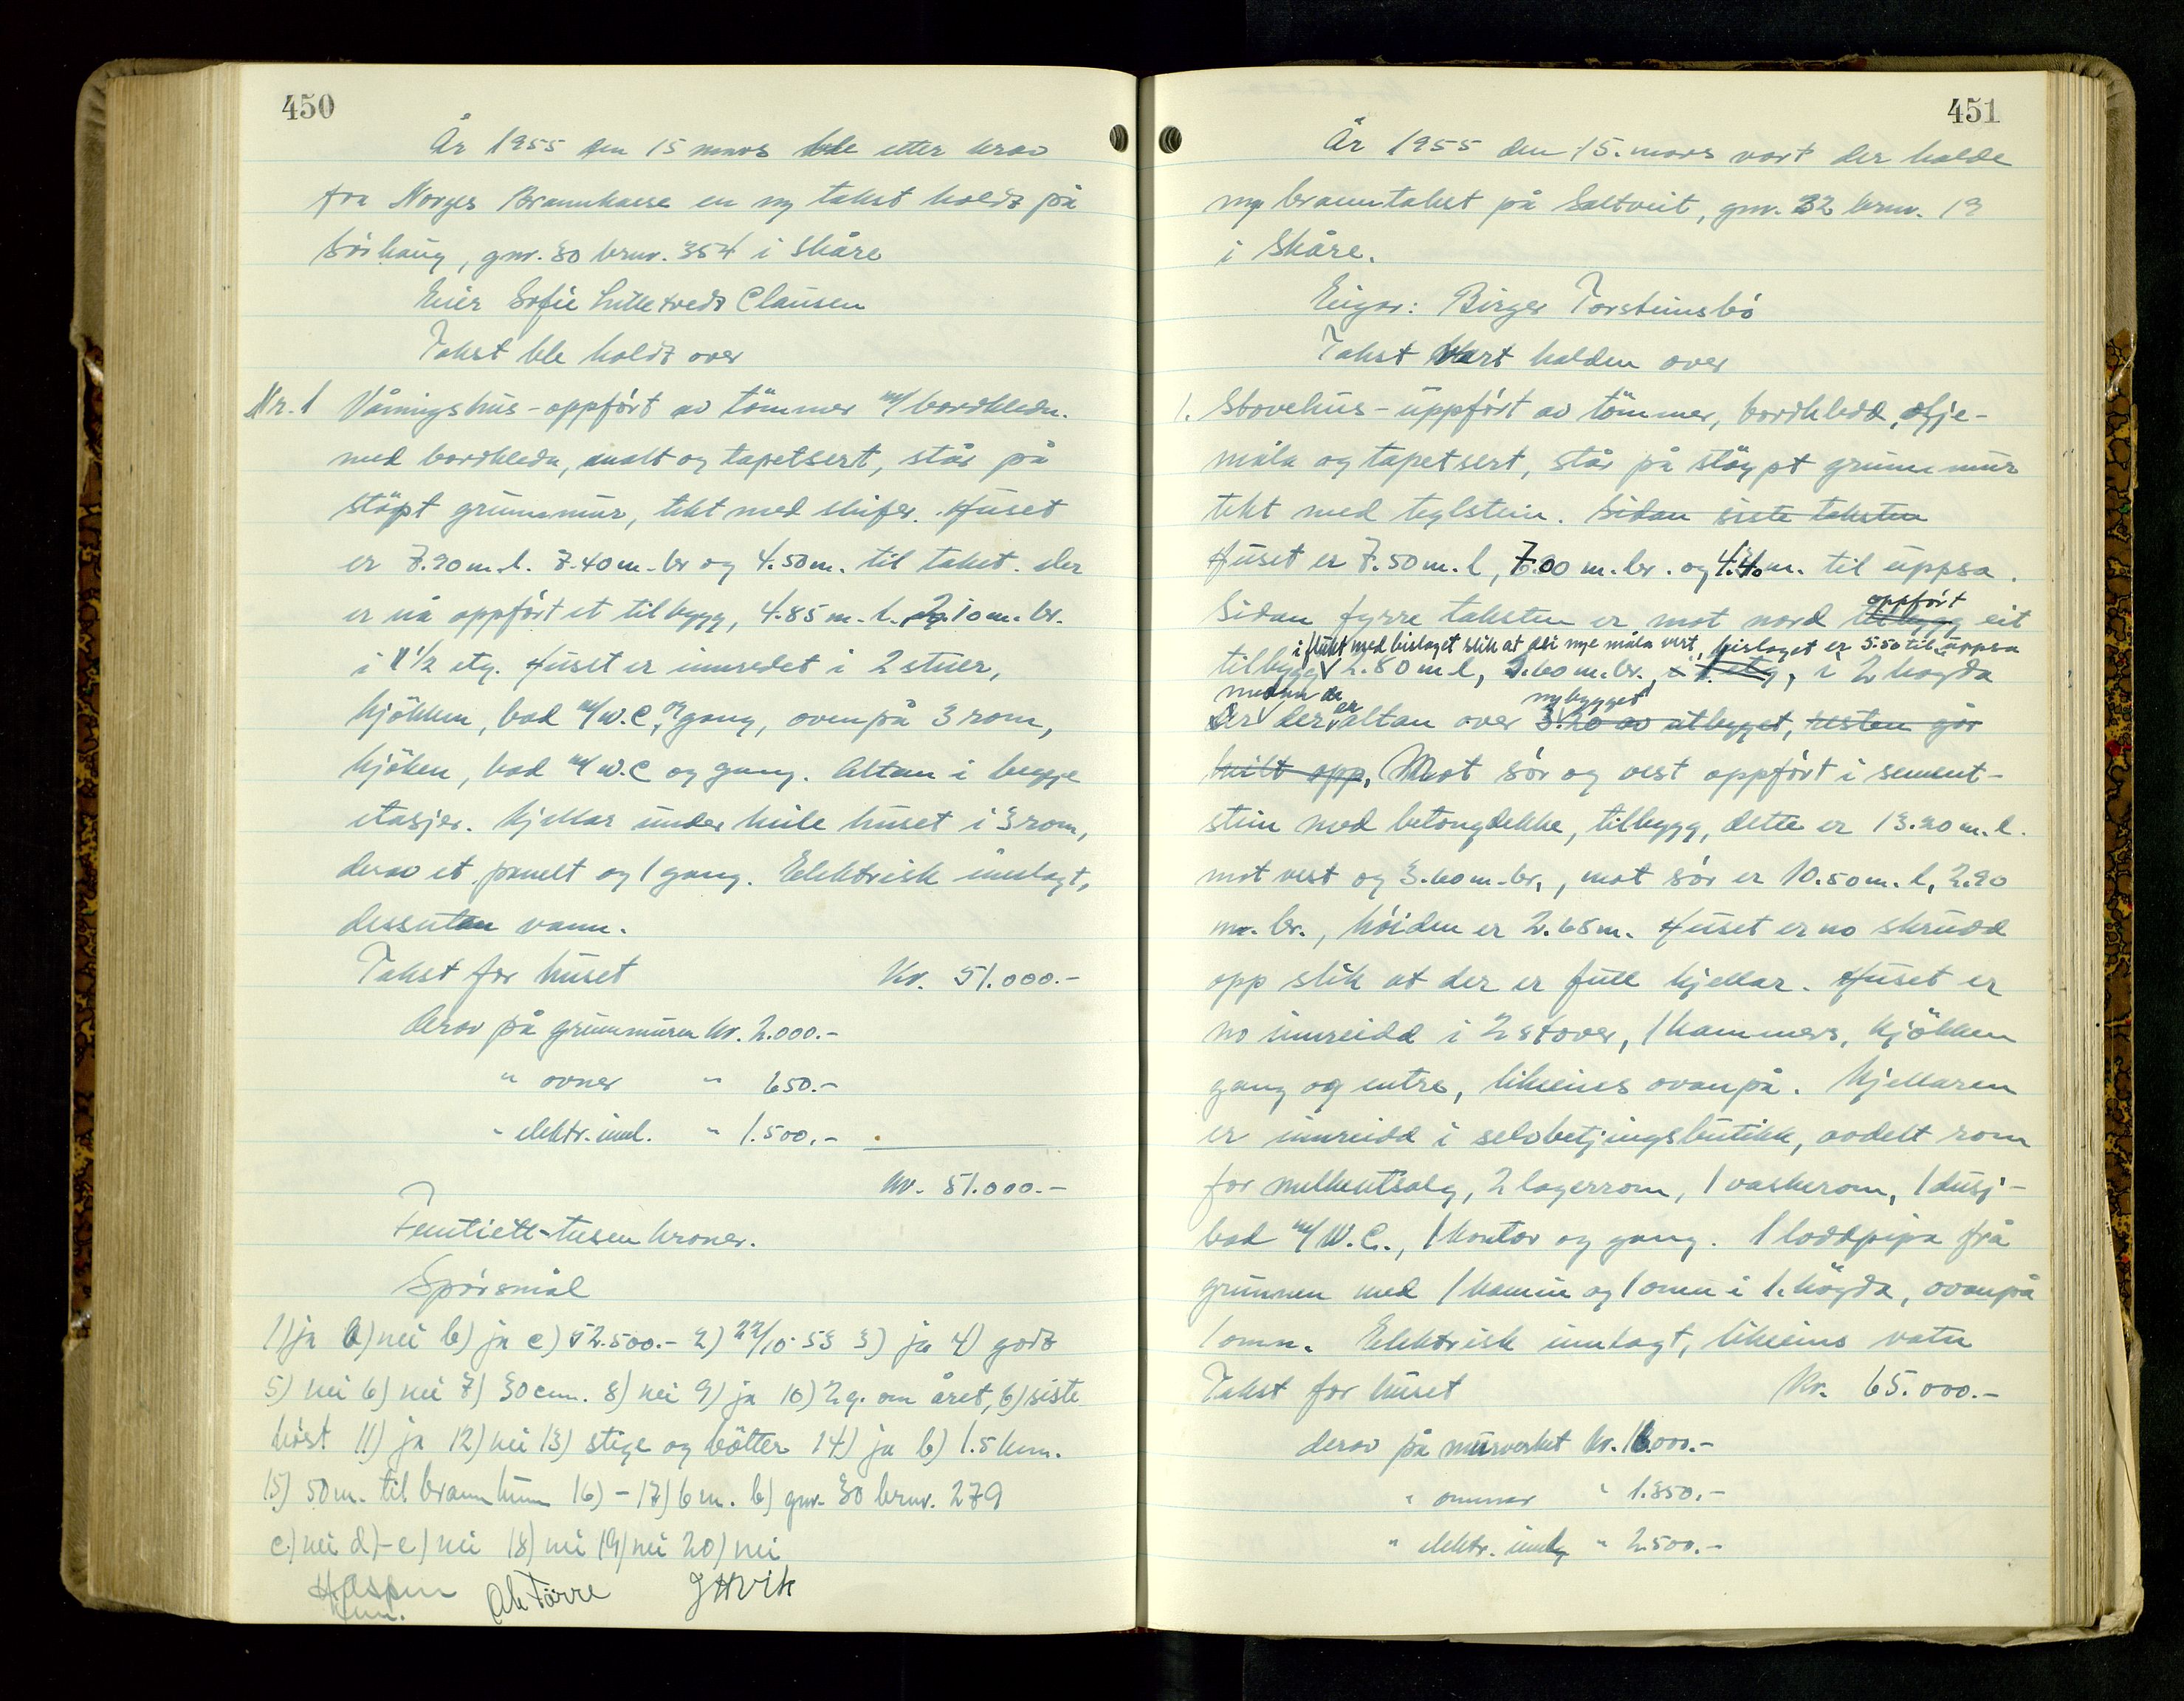 450
År 1955 den 15 mars ble etter krav
fra Norges Brannkasse en ny takst holdt på
Sörhaug, gnr. 30 brnr. 354 i Skåre
Eier Sofie Clausen
Takst ble holdt over
Nr. 1 Våningshus - oppfört av tömmer m/bordkledn.
med bordkledn, malt og tapetsert, står på
stöpt grunnmur, tekt med skifer. Huset
er 7.90 m. l. 7.40 m. br og 4.50 m. til takst. der
er nå oppfört et tilbygg, 4.85 m. l. 2.10 m. br.
i 1 1/2 etg. Huset er innredet i 2 stuer,
kjökken, bad m/W.C, og gang, ovenpå 3 rom,
kjöken, bad m/W.C og gang. Altan i begge
etasjer. Kjellar under heile huset i 3 rom,
derav et panelt og 1 gang. Elektrisk innlagt,
dessuten vann.
Takst for huset Kr. 51.000.-
derav på grunnmuren kr. 2.000.-
" ovner " 650.-
" elektr. innl. " 1.500.-
kr. 51.000.-
Femtiett-tusen kroner.
Spörsmål
1) ja a) nei b) ja c) 52.500.- 2) 22/10-53 3) ja 4) godt
5) nei 6) nei 7) 30 cm. 8) nei 9) ja 10) 2 g. om året, b) siste
höst 11) ja 12) nei 13) stige og bötter 14) ja b) 1.5 km.
15) 50 m. til brannkum 16) - 17) 6 m. b) gnr. 30 brnr. 279
c) nei d) - e) nei 18) nei 19) nei 20) nei
J H Vik
451
År 1955 den 15. mars vart der halde
ny branntakst på Saltveit, gnr. 32 brnr. 19
i Skåre.
Eigar: Birger Torsteinsbö
Takst vart halden over
1. Stovehus - uppfört av tömmer, bordkledd, olje-
måla og tapetsert, står på stöypt grunnmur
tekt med teglstein. Sidan siste taksten
Huset er 7.50 m. l, 7.00 m. br. og 4.40 m. til uppsa.
oppfört
Sidan fyrre taksten er mot nord tilbygg eit
i flukt med bislaget slik at dei nye måla vert, bislaget er 5.50 til uppsa
tilbygg 2.80 m l, 3.60 m. br., i 1 etg, i 2 høgda
medan nybygget
Er der er altan over 3.20 av utbygget, resten går
heilt opp, Mot sör og vest oppfört i sement-
stein med betongdekke, tilbygg, dette er 13.20 m. l.
mot vest og 3.60 m. br., mot sör er 10.50 m. l, 2.90
m. br., höiden er 2.65 m. Huset er no skrudd
opp slik at der er full kjellar. Huset er
no innreidd i 2 stover, 1 kammers, kjökken
gang og entre, likeeins ovanpå. Kjellaren
er innreidd i selvbetjingsbutikk, avdelt rom
for melkeutsalg, 2 lagerrom, 1 vaskerom, 1 dusj-
bad m/W.C., 1 kontor og gang. 1 loddpipa frå
grunnen med 1 kamin og 1 omn i 1. högda, ovanpå
1 omn. Elektrisk innlagt, likeeins vatn
Takst for huset Kr. 65.000.-
derav på murverket kr. 16.000.-
" omnar " 1.850.-
" elektr. innlg " 2.500.-